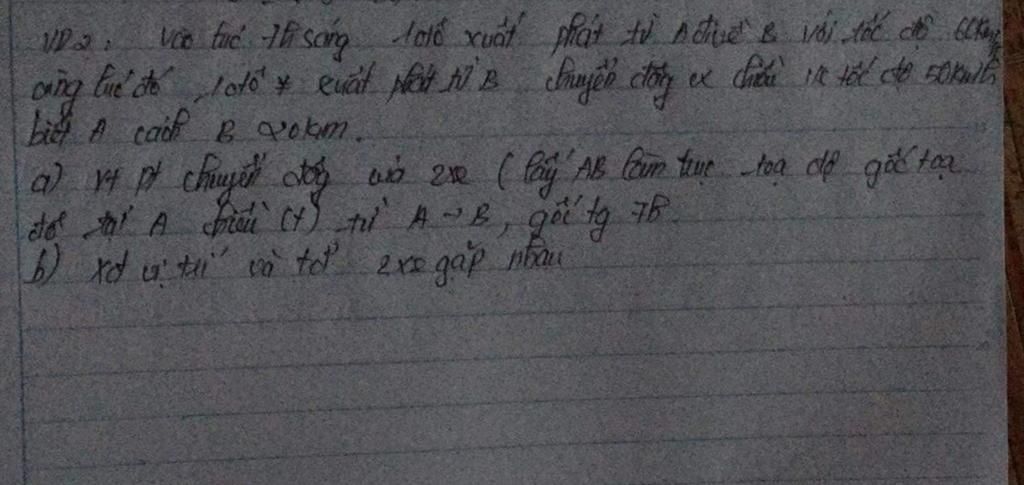 VD2: vào lúc 7h sáng 1 ôtô xuất phát từ A đi về B với tốc độ 60km/h
cùng lúc đó, 1 ôtô ≠ xuất phát từ B chuyển động chiều tốc độ 50km/h
biết A cách B 220km.
a) Vt pt chuyển động của 2xe (lấy AB làm trục toạ độ gốc toạ
độ tại A chiều (+) từ A → B, gốc tg 7h
b) xđ vị trí và tđ 2xe gặp nhau